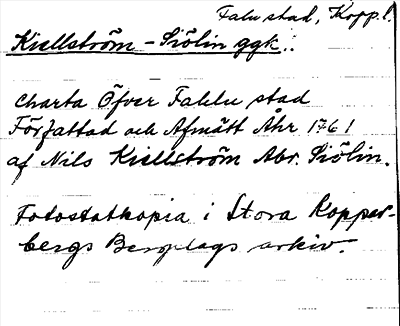 Falu stad, Kopp.l.
Kiellström - Siölin ggk.
Charta Öfver Fahlu stad
Författad och Afmätt Åhr 1761
af Nils Kiellström Abr. Siölin.
Fotostatkopia i Stora Koppar-
bergs Bergslags arkiv.